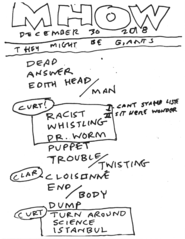 MHOW
DECEMBER 30 2018
THEY MIGHT BE GIANTS
DEAD
ANSWER
EDITH HEAD / MAN
CURT!
RACIST
WHISTLING
DR. WORM
I CANT STAND LIVE
SIT HERE WONDER
PUPPET
TROUBLE / TWISTING
CLAR CLOISONNE
END / BODY
DUMP
CURT TURN AROUND
SCIENCE
ISTANBUL